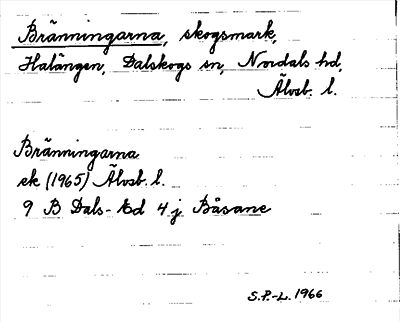 Bränningarna, skogsmark,
Halängen, Dalskogs sn, Nordals hd,
Älvsb. l.
Bränningarna
ek (1965) Älvsb. l.
9 B Dals-Ed 4 j Båsane
S.P.-L. 1966